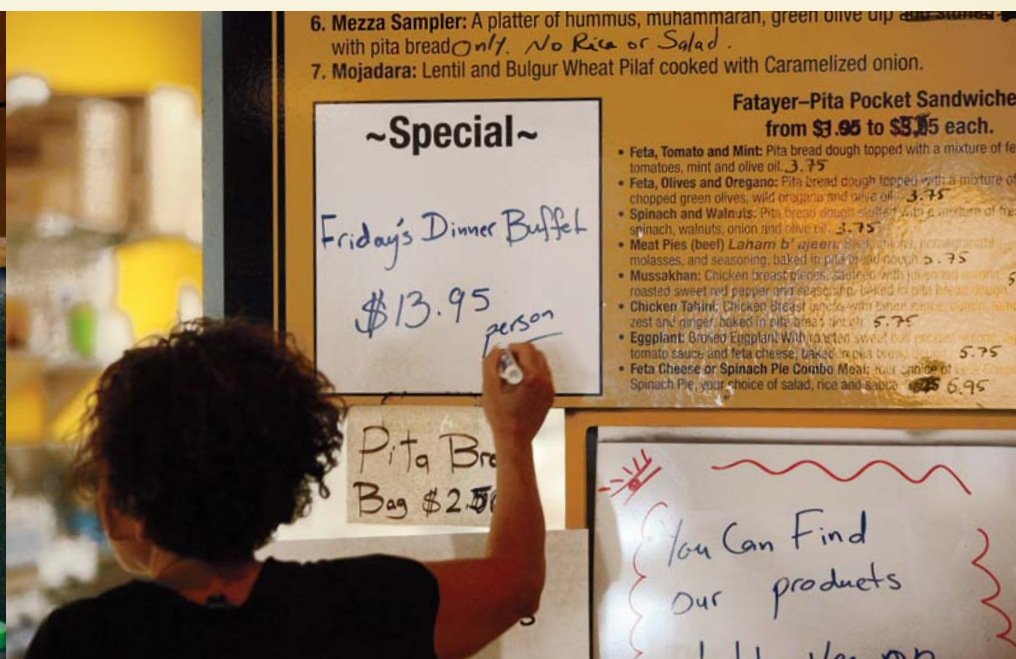 6. Mezza Sampler: A platter of hummus, muhammarah, green olive dip
with pita bread Only. No Rice or Salad.
7. Mojadara: Lentil and Bulgur Wheat Pilaf cooked with Caramelized onion.
~Special~
Friday's Dinner Buffet
$13.95
person
Fatayer–Pita Pocket Sandwiche
from to each.
• Feta, Tomato and Mint: Pita bread dough topped with a mixture of fe
tomatoes, mint and olive oil. 3.75
• Feta, Olives and Oregano: Pita bread dough topped with a mixture of
chopped green olives, wild oregano and olive oil. 3.75
• Spinach and Walnuts: Pita bread dough stuffed with a mixture of fre
spinach, walnuts, onion and olive oil. 3.75
• Meat Pies (beef) Laham b' ajeen:
molasses, and seasoning, baked in pita bread dough 5.75
• Mussakhan: Chicken breast pieces,
roasted sweet red pepper and baked in pita bread dough
• Chicken Tahini: Chicken Breast with
zest and ginger, baked in pita bread 5.75
• Eggplant: Broiled Eggplant With sweet
tomato sauce and feta cheese, baked in pita bread 5.75
• Feta Cheese or Spinach Pie Combo Meal: your choice of
Spinach Pie, your choice of salad, rice and sauce 6.95
Pita Bre
Bag
You Can Find
our products